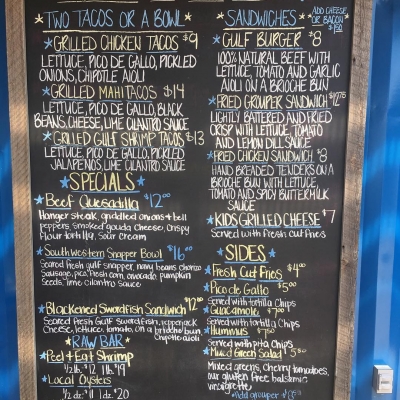 TWO TACOS OR A BOWL
GRILLED CHICKEN TACOS $9
LETTUCE, PICO DE GALLO, PICKLED
ONIONS, CHIPOTLE AIOLI
GRILLED MAHI TACOS $14
LETTUCE, PICO DE GALLO, BLACK
BEANS, CHEESE, LIME CILANTRO SAUCE
GRILLED GULF SHRIMP TACOS $13
LETTUCE, PICO DE GALLO, PICKLED
JALAPENOS, LIME CILANTRO SAUCE
SPECIALS
Beef Quesadilla $12.00
Hanger steak, griddled onions + bell
peppers, smoked gouda cheese, crispy
flour tortilla, sour cream
Southwestern Snapper Bowl $16.00
Seared fresh gulf snapper, navy beans chorizo
Sausage, pico, fresh corn, avocado, pumpkin
Seeds, lime cilantro sauce
Blackened Swordfish Sandwich $12.00
Seared Fresh Gulf swordfish, pepperjack
Cheese, lettuce, tomato, on a brioche bun
Chipotle aioli
RAW BAR
Peel + Eat Shrimp
1/2 lb. $12 1 lb. $19
Local Oysters
1/2 dz. $11 1 dz. $20
SANDWICHES
ADD CHEESE
OR BACON
$1.50
GULF BURGER $8
100% NATURAL BEEF WITH
LETTUCE, TOMATO AND GARLIC
AIOLI ON A BRIOCHE BUN
FRIED GROUPER SANDWICH $12.75
LIGHTLY BATTERED AND FRIED
CRISP WITH LETTUCE, TOMATO
AND LEMON DILL SAUCE
FRIED CHICKEN SANDWICH $8
HAND BREADED TENDERS ON A
BRIOCHE BUN WITH LETTUCE,
TOMATO AND SPICY BUTTERMILK
SAUCE
KIDS GRILLED CHEESE $7
Served with fresh cut fries
SIDES
Fresh Cut Fries $4.00
Pico de Gallo $5.00
Served with tortilla Chips
Guacamole $7.00
Served with tortilla Chips
Hummus $7.50
Served with pita Chips
Mixed Green Salad $5.50
Mixed greens, cherry tomatoes,
our gluten free balsamic
vinaigrette
Add grouper